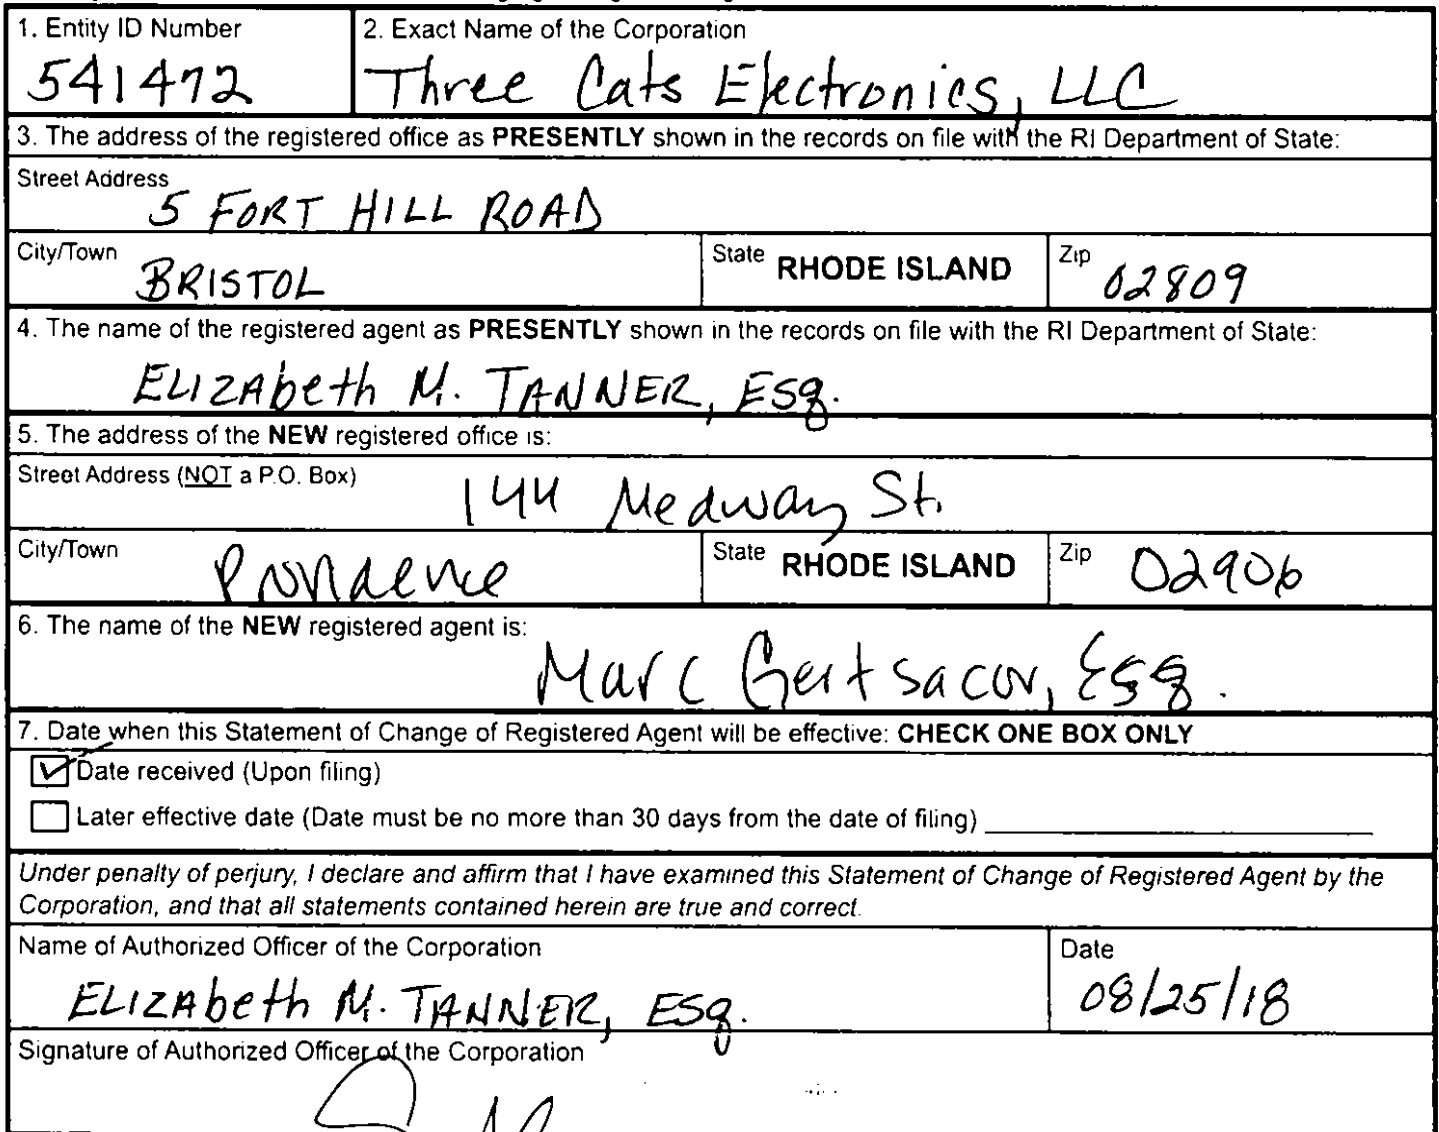 1. Entity ID Number
541472
2. Exact Name of the Corporation
Three Cats Electronics, LLC
3. The address of the registered office as PRESENTLY shown in the records on file with the RI Department of State:
Street Address
5 FORT HILL ROAD
City/Town
BRISTOL
State RHODE ISLAND
Zip 02809
4. The name of the registered agent as PRESENTLY shown in the records on file with the RI Department of State:
ELIZAbeth M. TANNER, ESq.
5. The address of the NEW registered office is:
Street Address (NOT a P.O. Box)
144 Medway St.
City/Town
Providence
State RHODE ISLAND
Zip 02906
6. The name of the NEW registered agent is:
Marc Gertsacov, Esq.
7. Date when this Statement of Change of Registered Agent will be effective: CHECK ONE BOX ONLY
Date received (Upon filing)
Later effective date (Date must be no more than 30 days from the date of filing)
Under penalty of perjury, I declare and affirm that I have examined this Statement of Change of Registered Agent by the
Corporation, and that all statements contained herein are true and correct.
Name of Authorized Officer of the Corporation
ELIZAbeth M. TANNER, ESq.
Date
08/25/18
Signature of Authorized Officer of the Corporation